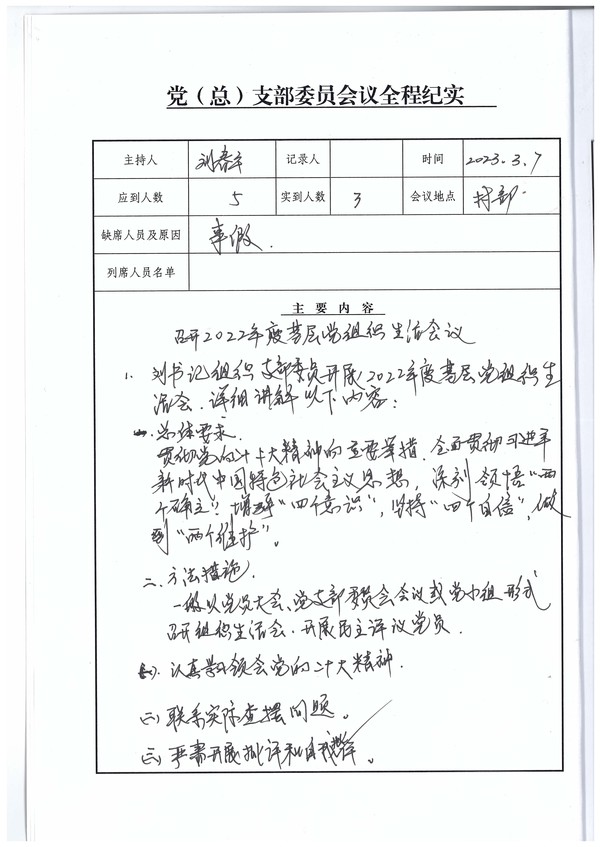 党（总）支部委员会议全程纪实
主持人 刘春平 记录人 时间 2023.3.7
应到人数 5 实到人数 3 会议地点 村部
缺席人员及原因 事假.
列席人员名单
主要内容
召开2022年度基层党组织生活会议
1. 刘书记组织支部委员开展2022年度基层党组织生
活会.详细讲解以下内容：
一.总体要求.
贯彻党的二十大精神的重要举措.全面贯彻习近平
新时代中国特色社会主义思想，深刻领悟“两
个确立”增强“四个意识”，坚持“四个自信”，做
到“两个维护”。
二.方法措施.
一般以党员大会、党支部委员会会议或党小组形式
召开组织生活会.开展民主评议党员.
(一)认真学习领会党的二十大精神.
(二)联系实际查摆问题。
(三)严肃开展批评和自我批评。